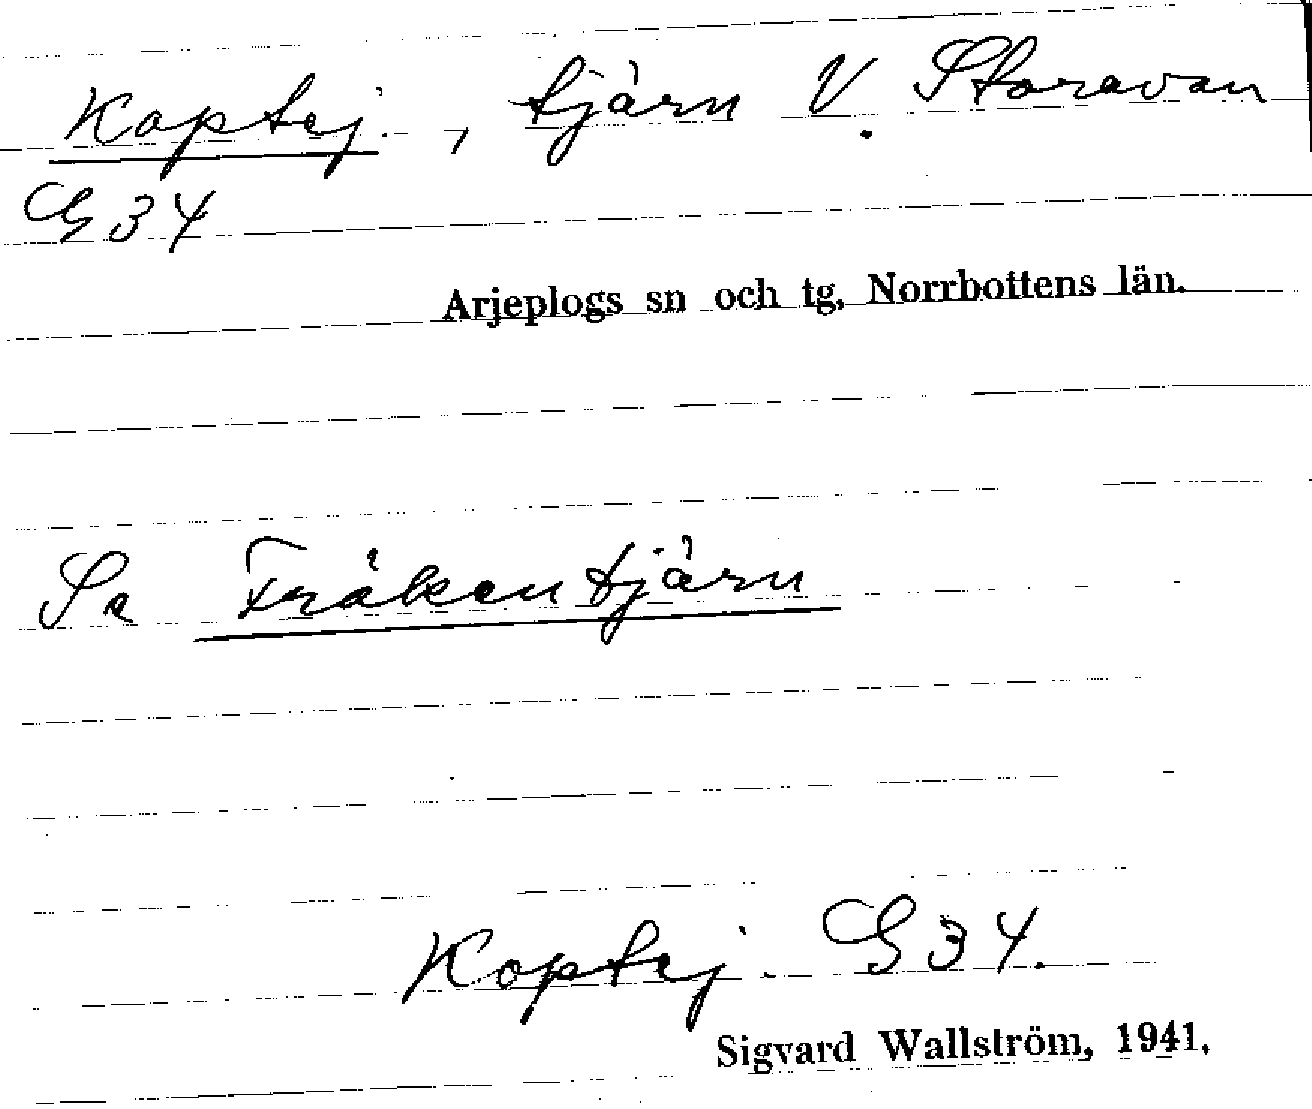 Koptej, tjärn V. Storavan
G 34
Arjeplogs sn och tg, Norrbottens län.
Se Fräkentjärn
Koptej G 34.
Sigvard Wallström, 1941.